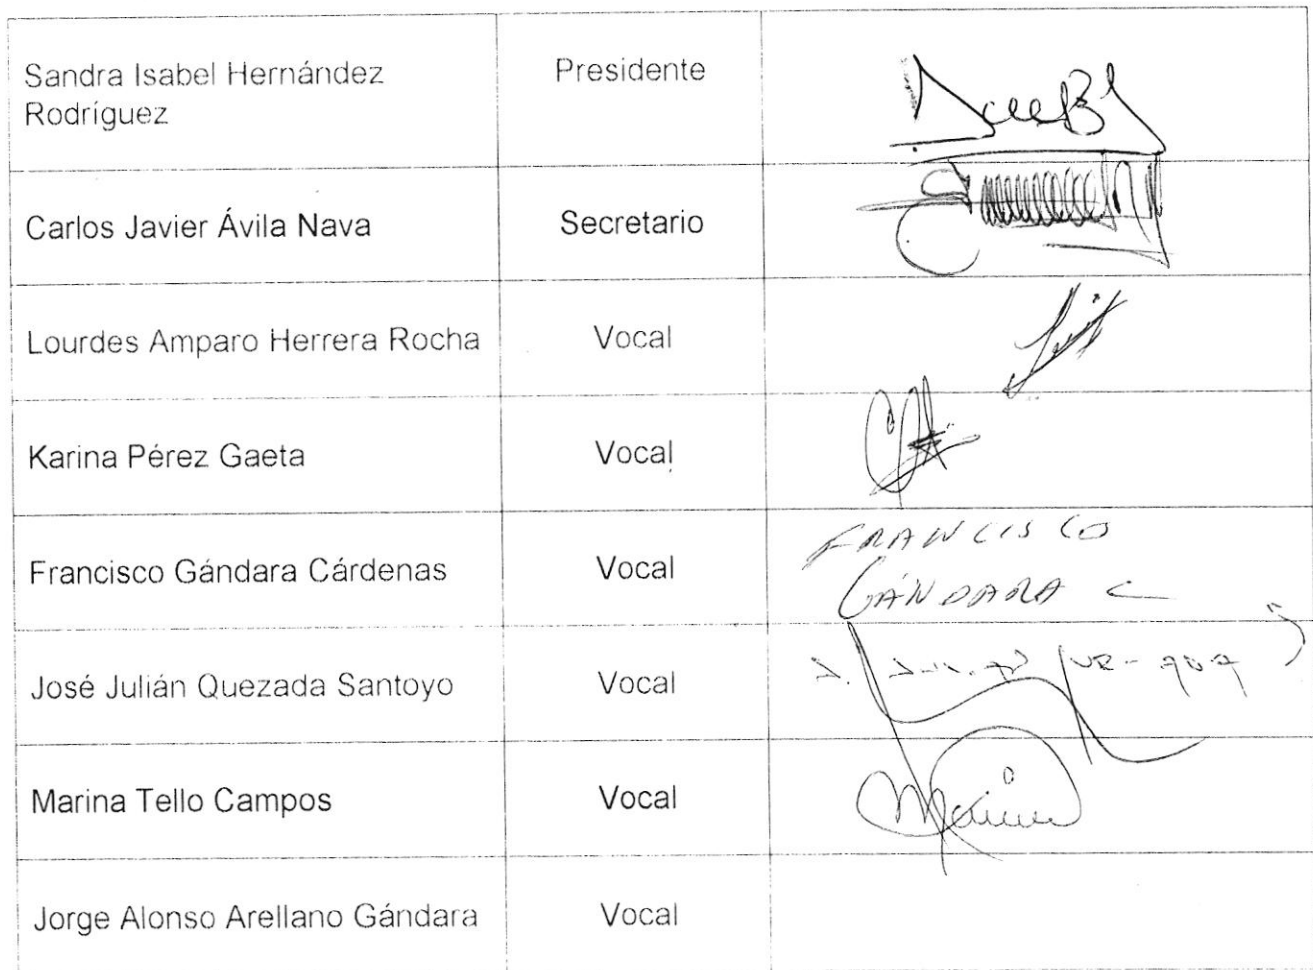 Sandra Isabel Hernández Presidente
Rodríguez
Carlos Javier Ávila Nava Secretario
Lourdes Amparo Herrera Rocha Vocal
Karina Pérez Gaeta Vocal
FRANCISCO
Francisco Gándara Cárdenas Vocal
GÁNDARA C
José Julián Quezada Santoyo Vocal
Marina Tello Campos Vocal
Jorge Alonso Arellano Gándara Vocal